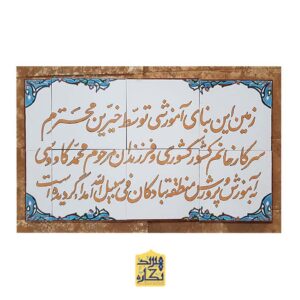 زمین این بنای آموزشی توسط خیرین محترم
سرکار خانم کشور کشوری و فرزندان مرحوم محمد کاودی
آموزش پرورش منطقه بهادران فی سبیل الله اهدا گردیده است